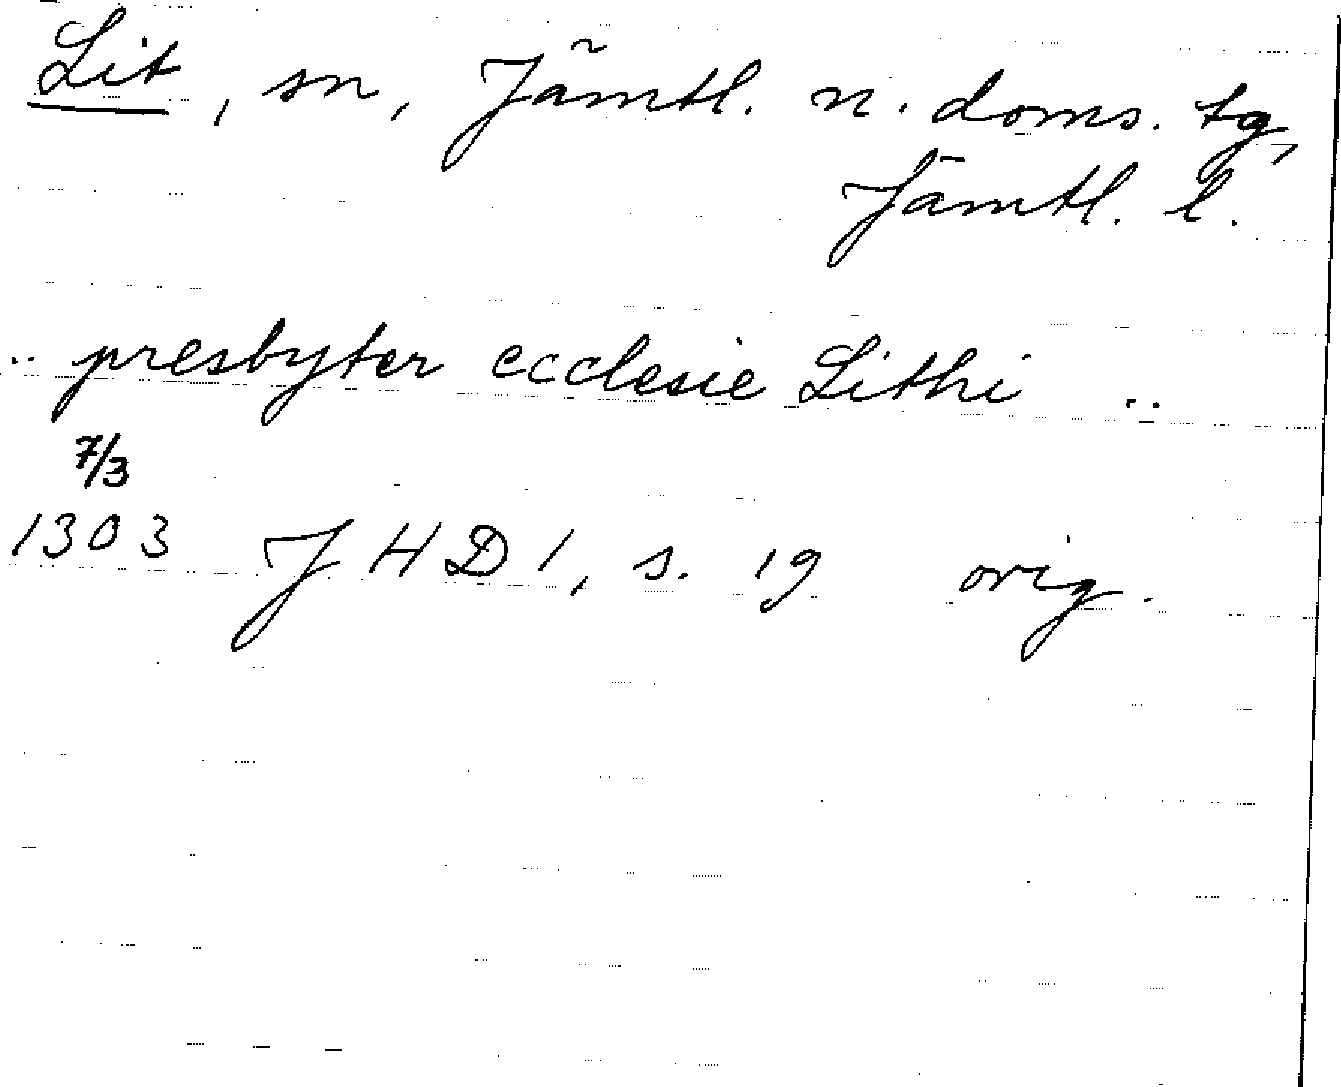 Lit, sn, Jämtl. n. doms. tg,
Jämtl. l.
.. presbyter ecclesie Lithi ..
7/3
1303 JHD 1, s. 19 orig.